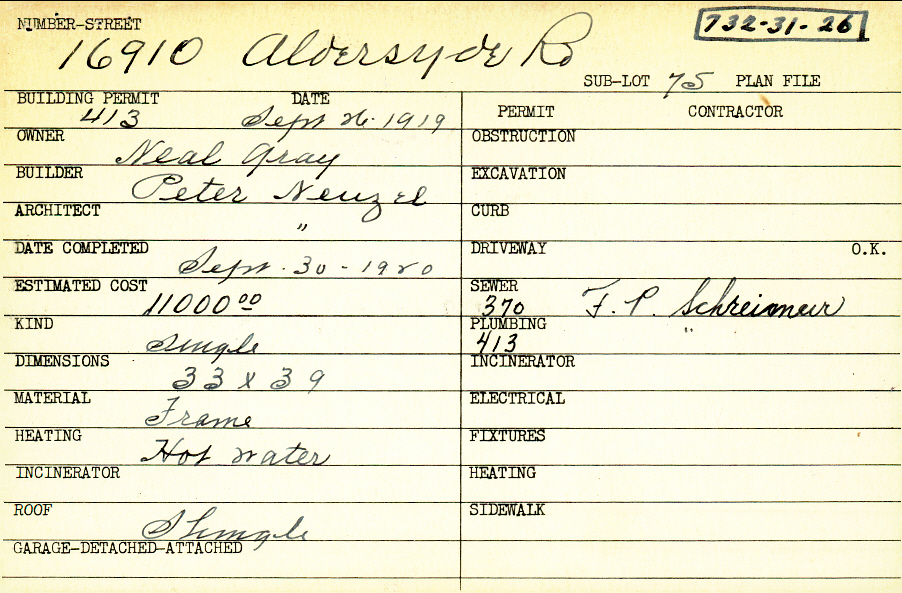 NUMBER-STREET
732-31-26
16910 Aldersyde Rd
SUB-LOT 75 PLAN FILE
BUILDING PERMIT DATE
413 Sept 26-1919
OWNER
Neal Gray
BUILDER
Peter Neuzel
ARCHITECT
"
DATE COMPLETED
Sept-30-1920
ESTIMATED COST
11000.00
KIND
Single
DIMENSIONS
33 x 39
MATERIAL
Frame
HEATING
Hot water
INCINERATOR
ROOF
Shingle
GARAGE-DETACHED-ATTACHED
PERMIT CONTRACTOR
OBSTRUCTION
EXCAVATION
CURB
DRIVEWAY O.K.
SEWER
370 F. P.
PLUMBING "
413
INCINERATOR
ELECTRICAL
FIXTURES
HEATING
SIDEWALK